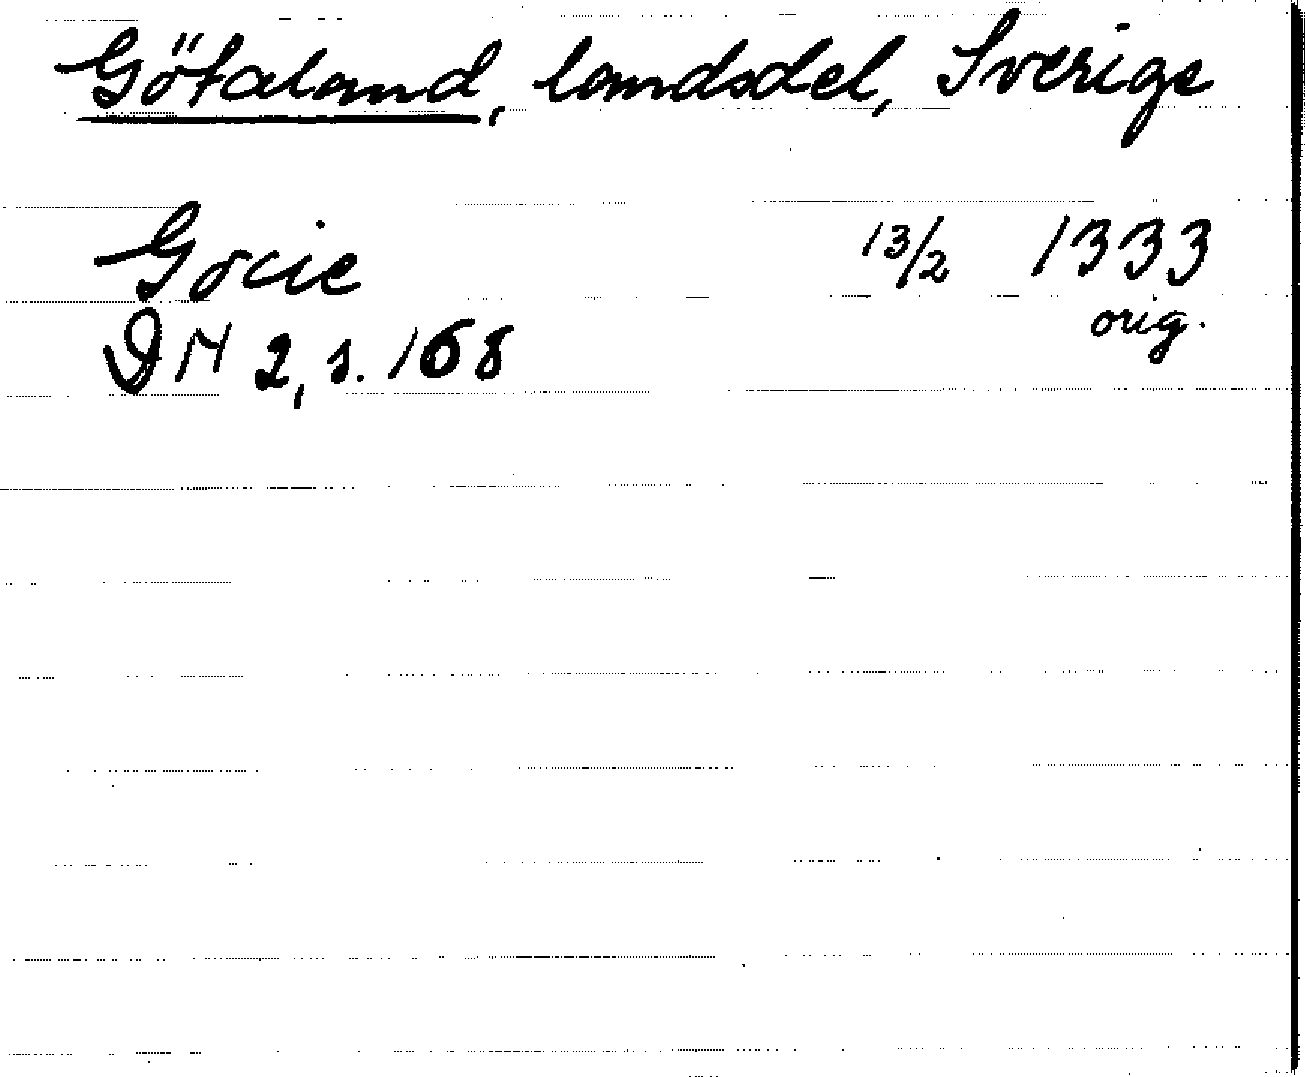 Götaland, landsdel, Sverige
Gocie 13/2 1333
orig.
DN 2, s. 168